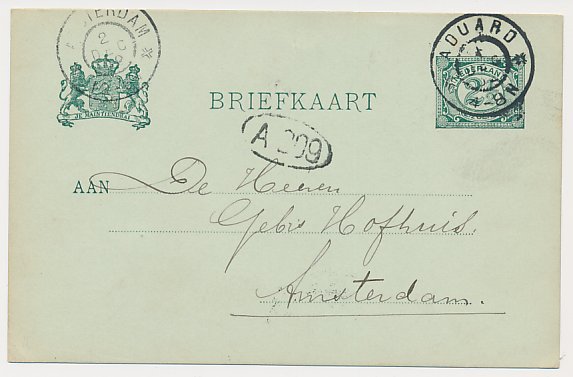 AMSTERDAM
JE MAINTIENDRAI
BRIEFKAART
ADUARD
NEDERLAND
4-8N
A 209
AAN De Heeren
Gebrs Hofhuis.
Amsterdam.